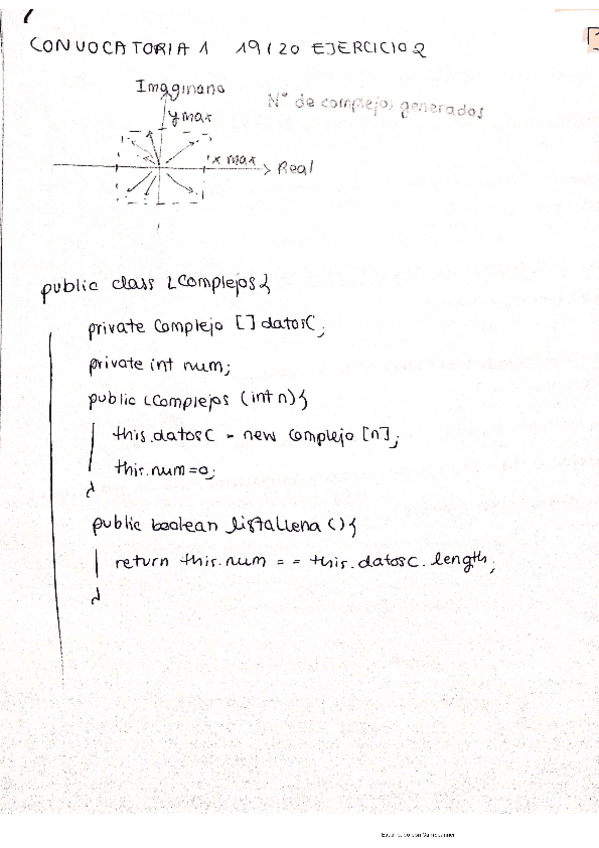 CONVOCATORIA 1 19/20 EJERCICIO 2
Imaginario
y max
Nº de complejos generados
x max
Real
public class LComplejos{
private Complejo [] datosC;
private int num;
public LComplejos (int n){
this.datosC = new Complejo [n];
this.num=0;
}
public boolean listaLlena (){
return this.num == this.datosC.length;
}